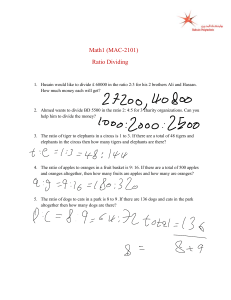 Math1 (MAC-2101)
Ratio Dividing
1. Husain would like to divide £ 68000 in the ratio 2:3 for his 2 brothers Ali and Hassan.
How much money each will get?
27200, 40800
2. Ahmed want to divide BD 5500 in the ratio 2: 4:5 for 3 charity organizations. Can you
help him to divide the money?
1000:2000:2500
3. The ratio of tiger to elephants in a circus is 1 to 3. If there are a total of 48 tigers and
elephants in the circus then how many tigers and elephants are there?
t:e=1:3=48:144
4. The ratio of apples to oranges in a fruit basket is 9: 16. If there are a total of 500 apples
and oranges altogether, then how many fruits are apples and how many are oranges?
a:g=9:16=180:320
5. The ratio of dogs to cats in a park is 8 to 9. If there are 136 dogs and cats in the park
altogether then how many dogs are there?
D:C=8 9=64:72 total=136
8= 8+9